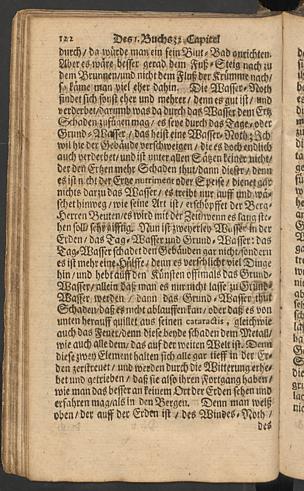 122 Des 1. Buchs 32. Capitel
durch / da würde man ein fein Blut-Bad anrichten.
Aber es wäre besser gerad dem Fuß-Steig nach zu
dem Brunnen / und nicht dem Fluß der Krümme nach /
so käme man viel eher dahin. Die Wasser-Noth
findet sich sonst eher und mehrer / denn es gut ist / und
verderbet / darumb was da durch das Wasser dem Ertz
Schaden zufügen mag / es seye durch das Tage- oder
Grund-Wasser / das heist eine Wasser-Noth: Ich
wil hie der Gebäude verschweigen / die es doch endlich
auch verderbet / und ist unter allen Sätzen keiner nicht /
der den Ertzen mehr Schaden thut / dann dieser / denn
es ist nicht der Ertze nutrimente oder Speise / dienet gar
nichts darzu das Wasser / es treibt nur auff und wä-
schet hinweg / wie seine Art ist / erschöpffet der Berg-
Herren Beuten / es wird mit der Zeit wenn es lang ste-
hen soll / sehr gifftig. Nun ist zweyerley Wasser in der
Erden / das Tag-Wasser und Grund-Wasser: das
Tag-Wasser schadet den Gebäuden gar nicht / sondern
es ist mehr eine Hülffe / denn es verschleist viel Dinge
hin / und hebt auff den Künsten offtmals das Grund-
Wasser / allein daß man es nur nicht lasse zu Grund-
Wasser werden / dann das Grund-Wasser thut
Schaden / daß es nicht ablauffen kan / oder daß es von
unten herauf quillet aus seinen cataractis, gleichwie
auch das Feuer / denn diese beyde schaden dem Metall /
wie auch alle dem / das auf der weiten Welt ist. Denn
diese zwey Element halten sich alle gar tieff in der Er-
den zerstreuet / und werden durch die Witterung erhe-
bet und getrieben / daß sie also ihren Fortgang haben /
wie man das besser an keinem Ort der Erden sehen und
erfahren mag / als in den Bergen. Denn man weiß
oben / der auff der Erden ist / des Windes-Noth /
des